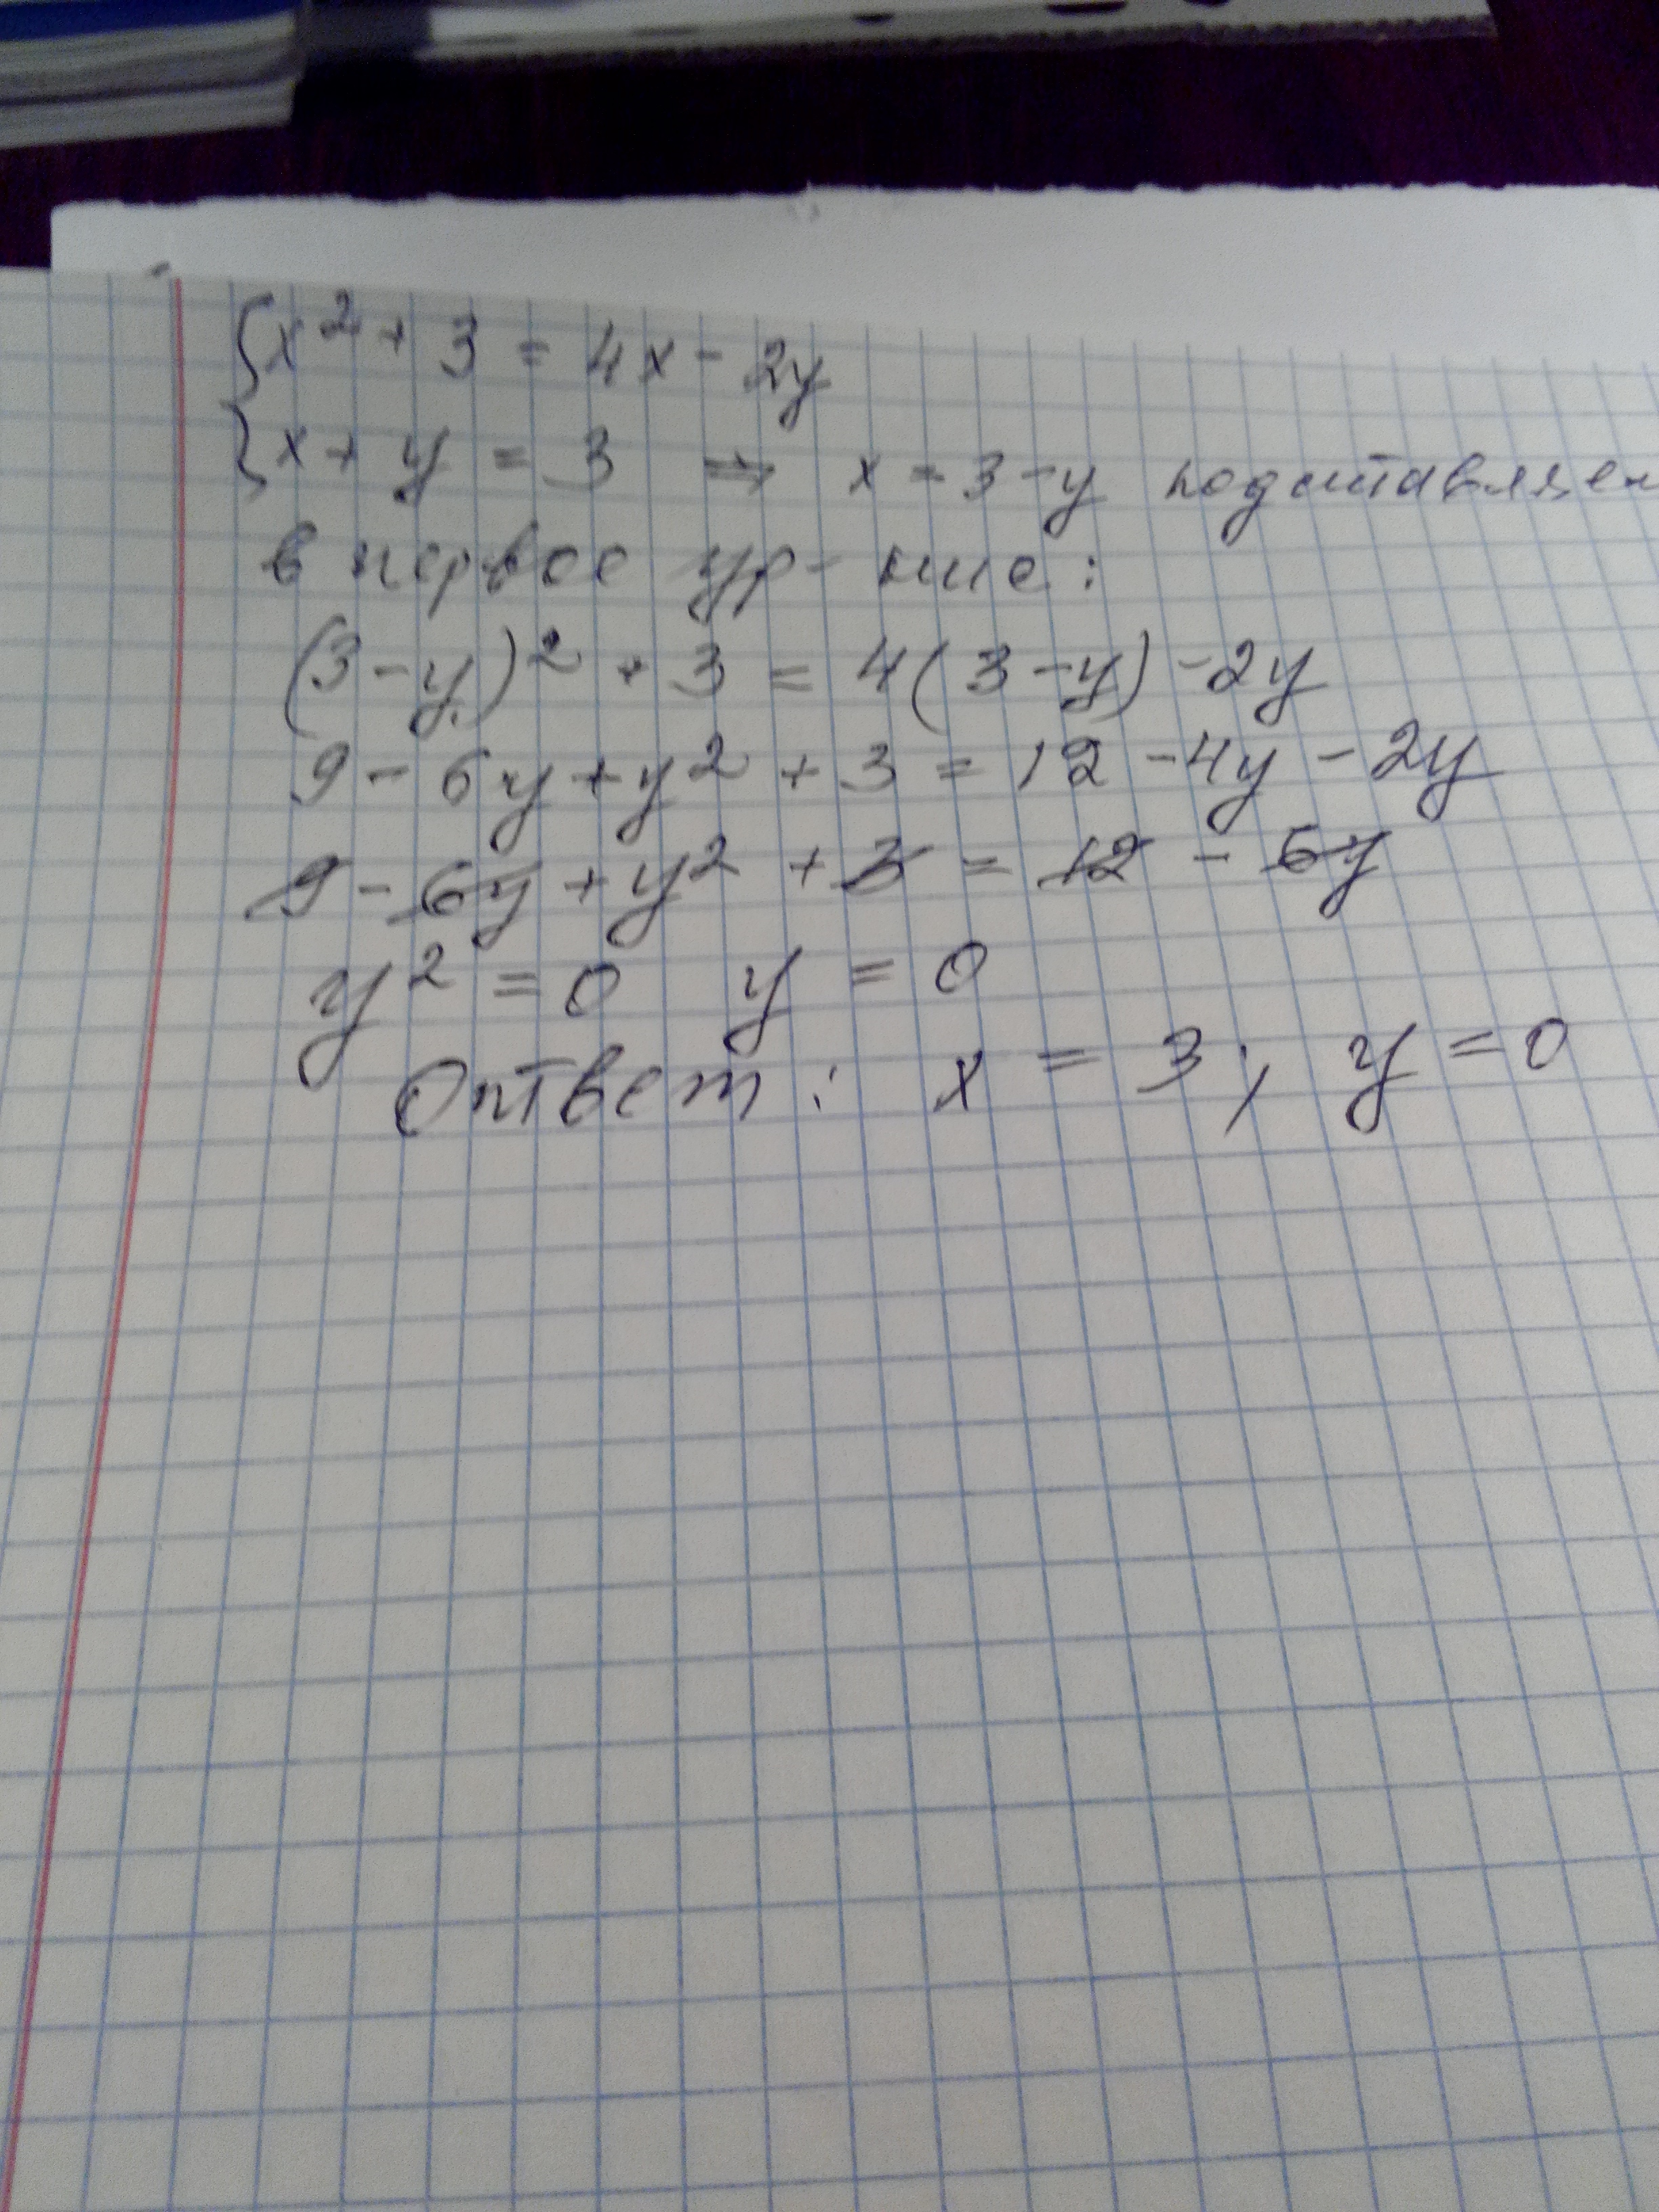 {x² + 3 = 4x - 2y
{x + y = 3 ⇒ x = 3 - y подставляем
в первое ур-ние:
(3 - y)² + 3 = 4(3 - y) - 2y
9 - 6y + y² + 3 = 12 - 4y - 2y
9 - 6y + y² + 3 = 12 - 6y
y² = 0 y = 0
Ответ: x = 3; y = 0